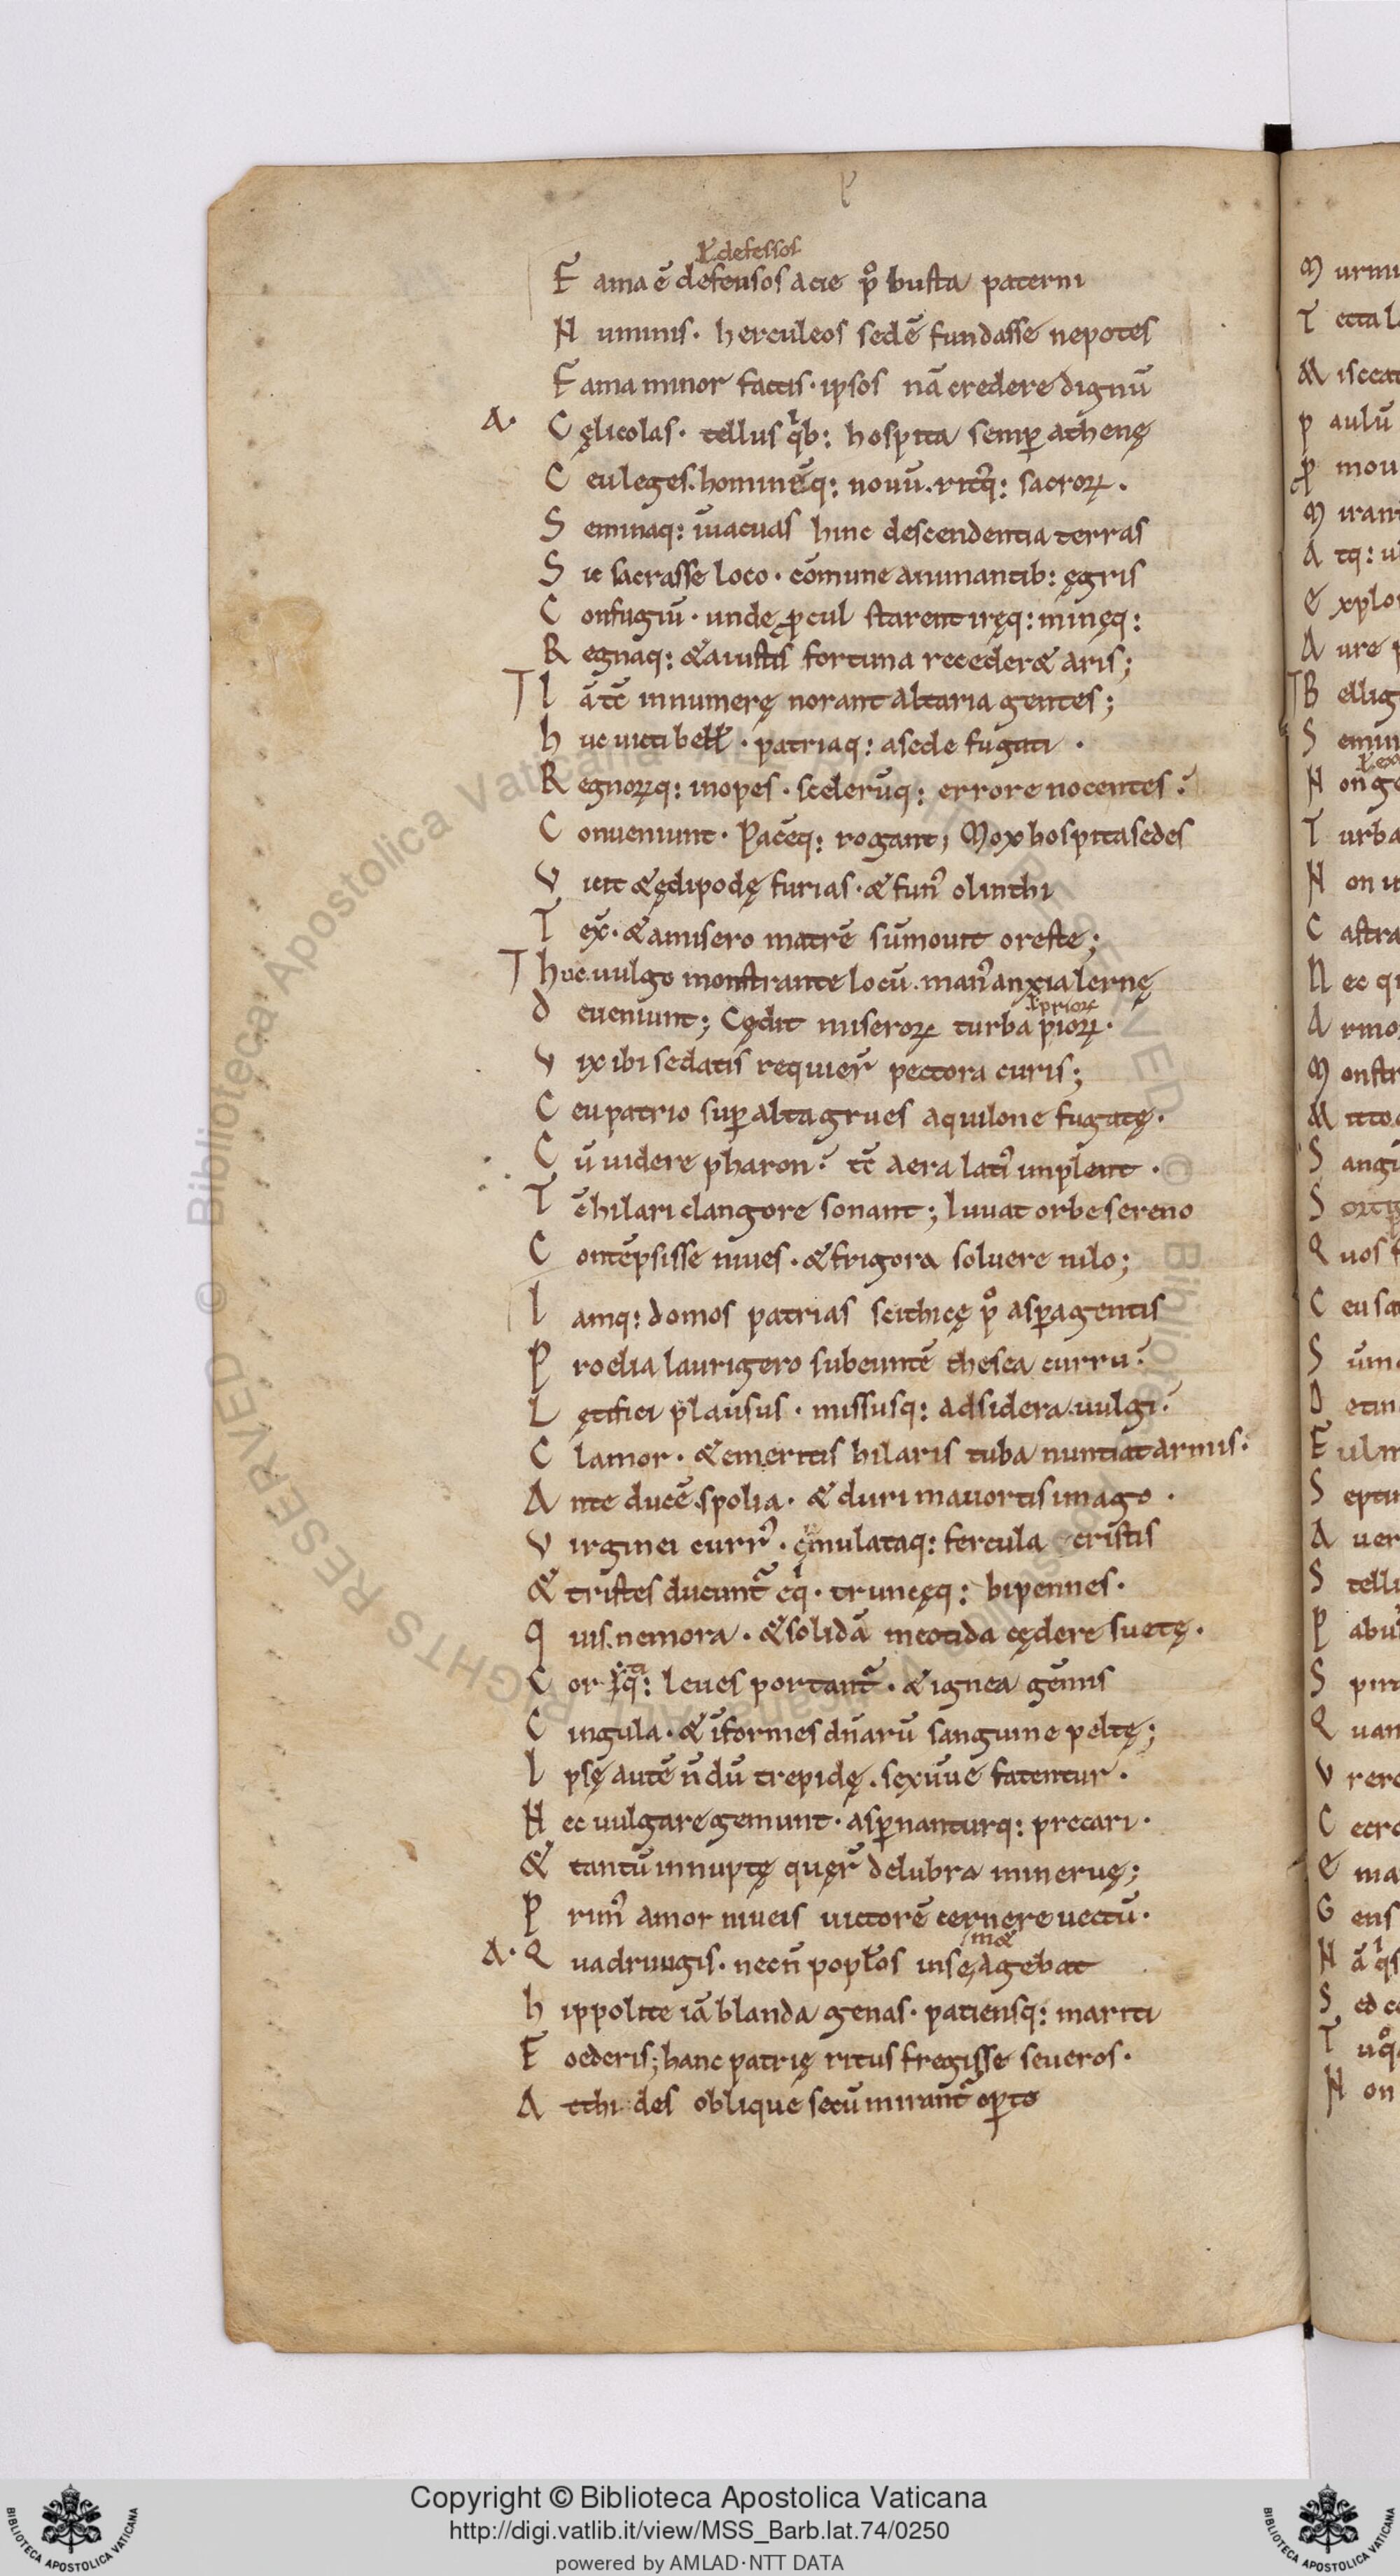 ł defessos
F ama ē defensos acie p᷒ busta paterni
N uminis · herculeos sedē fundasse nepotes
F ama minor factis · ipsos nā credere dignū
A· C ęlicolas · tellus qͥb: hospita semꝑ athenę
C eu leges. hominēq: nouū. ritūq: sacroꝝ .
S eminaq: iuacuas hinc descendentia terras
S ic sacrasse loco · cōmune animantib: ęgris
C onfugiū · unde ꝓcul starent iręq: minęq:
R egnaq: & a iustis fortuna receder& aris;
T I ā tc̄ innumerę norant altaria gentes;
h uc uicti bell̄ · patriaq: a sede fugati ·
R egnoꝝq: inopes · scelerūq: errore nocentes :
C onueniunt · Pacēq: rogant; Mox hospita sedes
V icit & ędipodę furias · & fun᷒ olinthi
T ex̄ · & a misero matrē sūmouit oreste;
T h uc. uulgo monstrante locū. man᷒ anxia lernę
ł prioꝝ
D eueniunt; Cędit miseroꝝ turba pioꝝ ·
V ix ibi sedatis requier̄ pectora curis;
C eu patrio suꝑ alta grues aquilone fugatę ·
C ū uidere pharon : tc̄ aera lati᷒ implent ·
T c̄ hilari clangore sonant; Iuuat orbe sereno
C ontēpsisse niues · & frigora soluere nilo;
I amq: domos patrias scithicę p᷒ asꝑa gentis
P roelia laurigero subeuntē thesea curru :
L ętifici plausus · missusq: ad sidera. uulgi :
C lamor · & emeritis hilaris tuba nuntiat armis :
A nte ducē. spolia · & duri mauortis imago ·
V irginei curr᷒ · ęmulataq: fercula cristis
& tristes ducunt᷑ eqͥ · truncęq: bipennes ·
Q uis. nemora · & solidā meotida cędere suetę ·
C or iq: leues portant᷑ · & ignea gēmis
C ingula · & īformes dn̄arū sanguine peltę;
I psę autē n̄ dū trepidę . sexūue fatentur ·
N ec uulgare gemunt · asꝑnanturq: precari ·
& tantū innuptę quęr̄ delubra mineruę;
P rim᷒ amor niueis uictorē cernere uectū ·
m&
A· Q uadriiugis · necn̄ popl̄os inse agebat
h ippolite iā blanda genas · patiensq: mariti
F oederis; hanc patrię ritus fregisse seueros ·
A tthides oblique secū mirant᷑ oꝑto
Copyright © Biblioteca Apostolica Vaticana
http://digi.vatlib.it/view/MSS_Barb.lat.74/0250
powered by AMLAD·NTT DATA